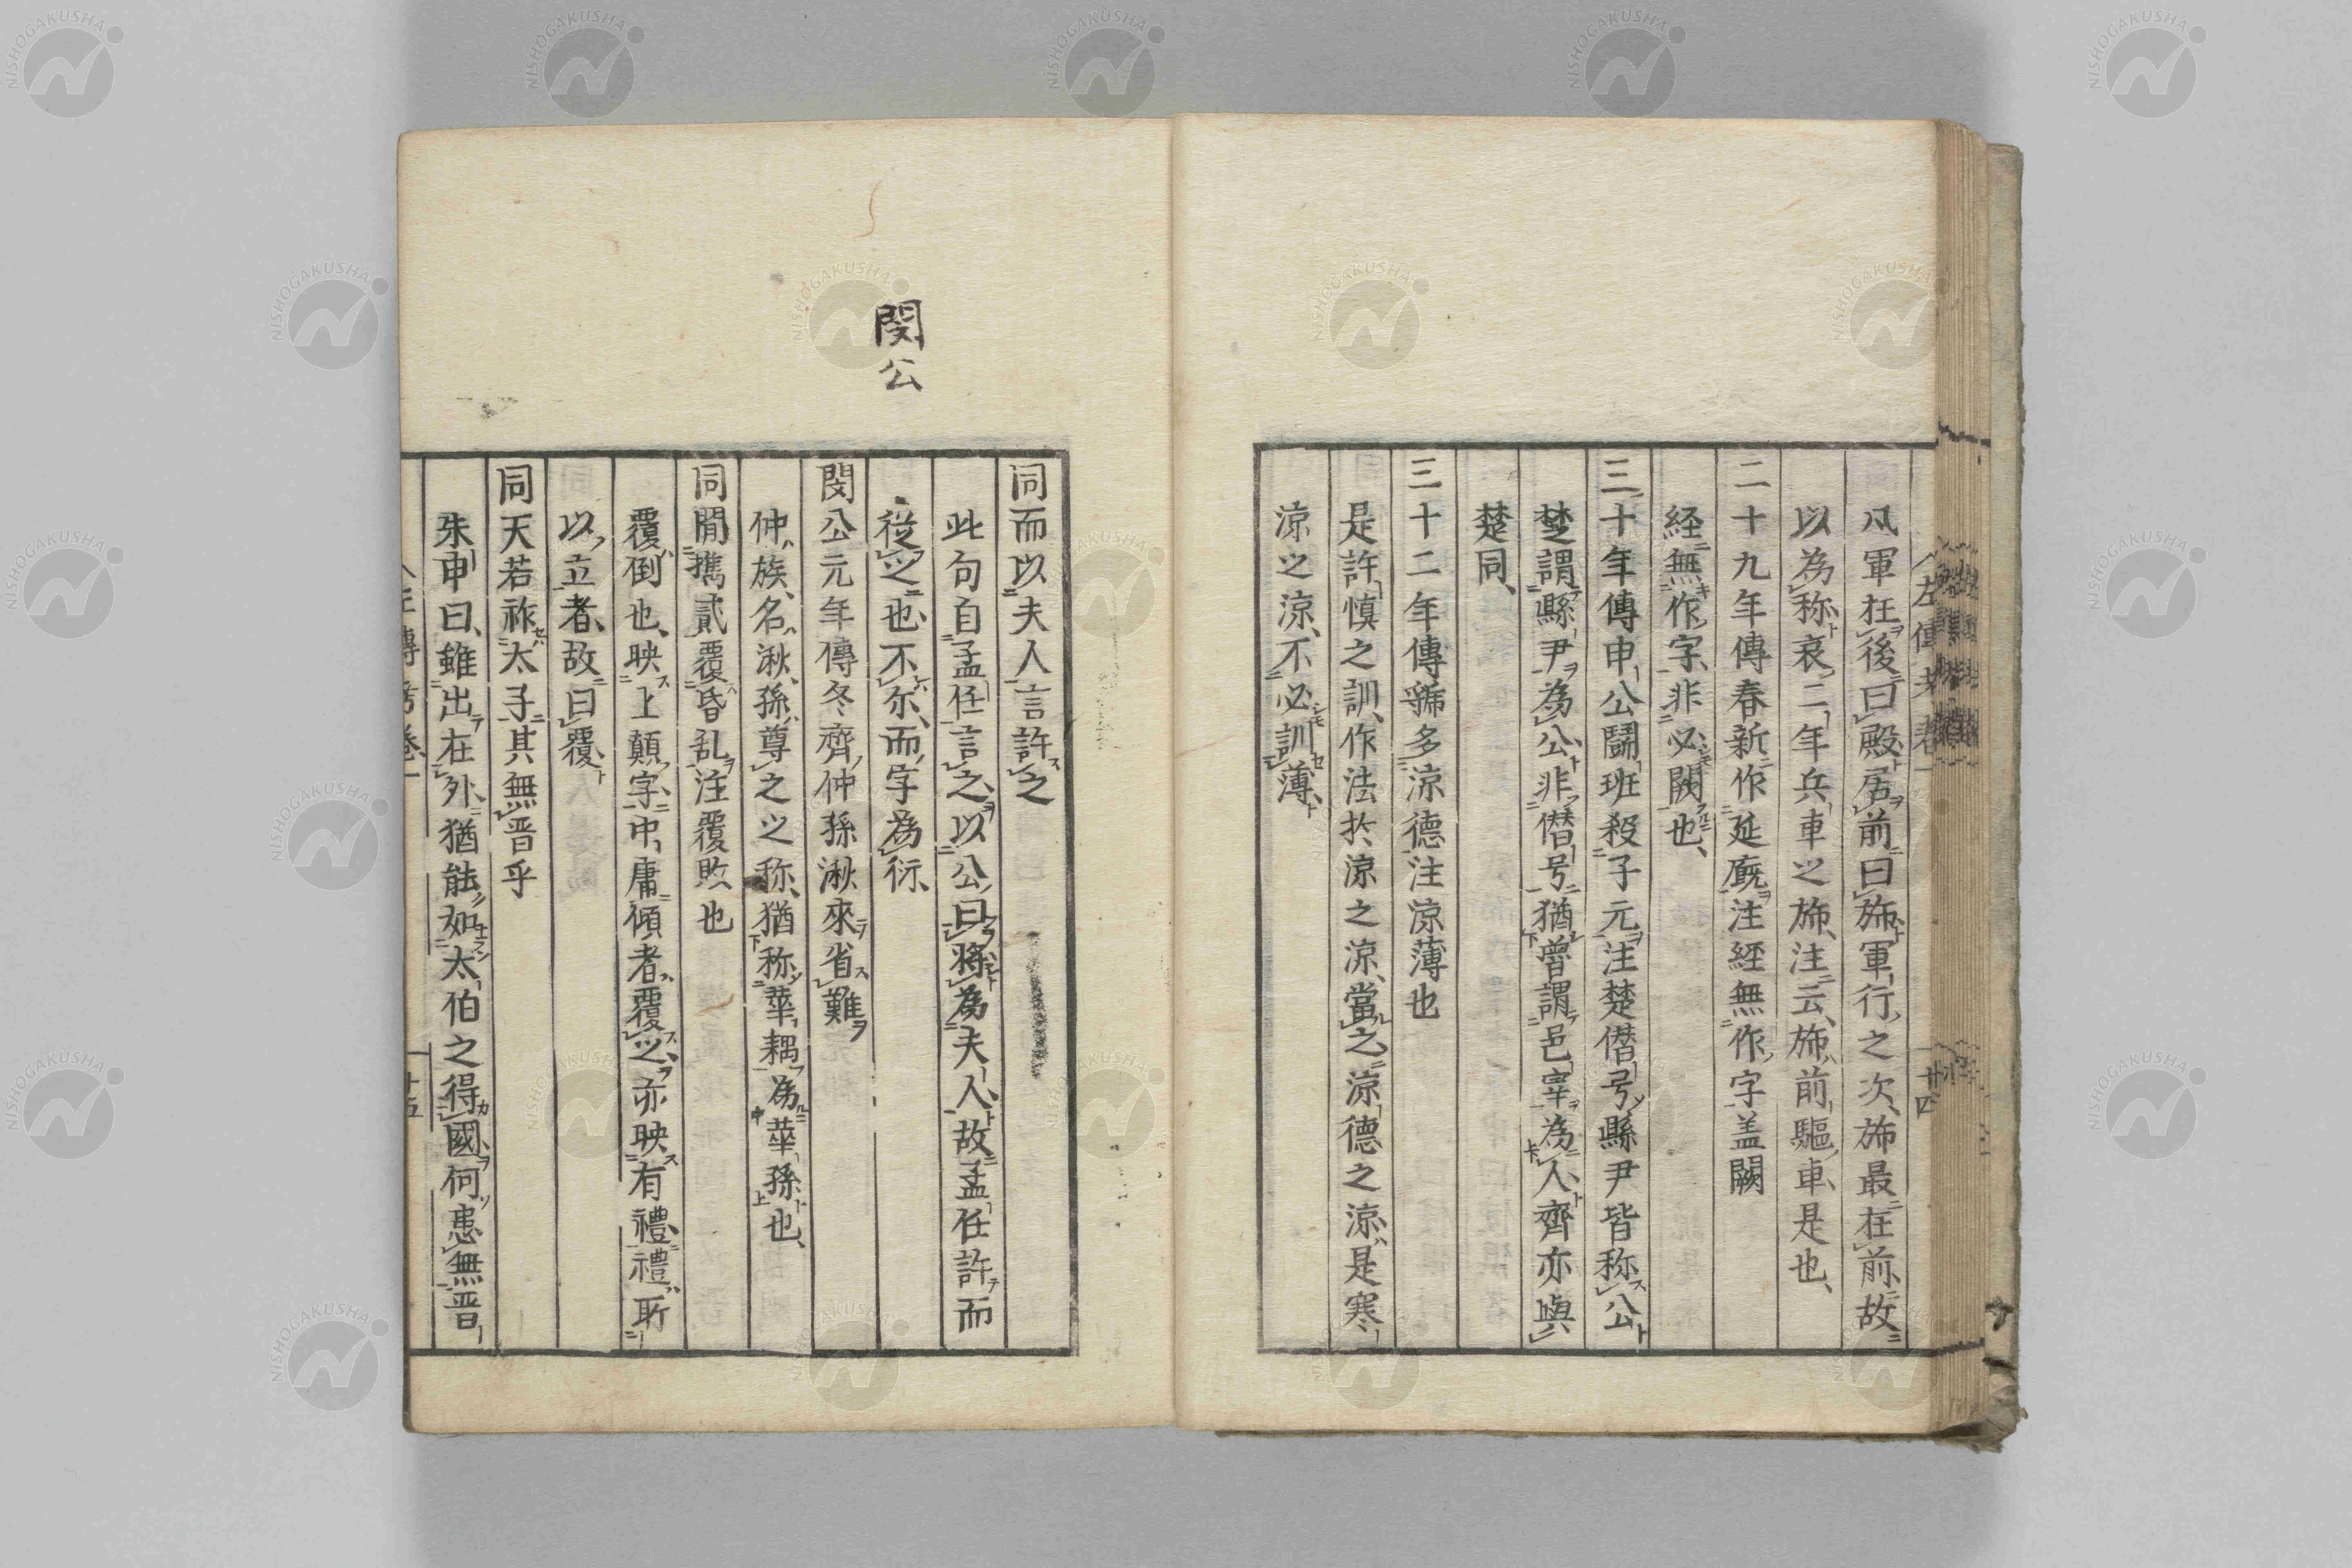 凡軍在後曰殿居前曰旆軍行之次旆最在前故
以為称哀二年兵車之旆注云旆前驅車是也
二十九年傳春新作延廐注経無作字盖闕
経無作字非必闕也
三十年傳申公鬪班殺子元注楚僭号縣尹皆称公
楚謂縣尹為公非僭号猶曽謂邑宰為人齊亦與
楚同
三十二年傳虢多涼德注涼薄也
是許慎之訓作法於涼之涼當之涼德之涼是寒
涼之涼不必訓薄
閔公
同而以夫人言許之
此句自孟任言之以公曰將為夫人故孟任許而
從之也不尓而字為衍
閔公元年傳冬齊仲孫湫來省難
仲族名湫孫尊之之称猶称華耦為華孫也
同間攜貳覆昏乱注覆敗也
覆倒也映上顛字中庸傾者覆之亦映有禮禮所
以立者故曰覆
同天若祚太子其無晋乎
朱申曰雖出在外猶能如太伯之得國何患無晋
左傳考卷一 十五